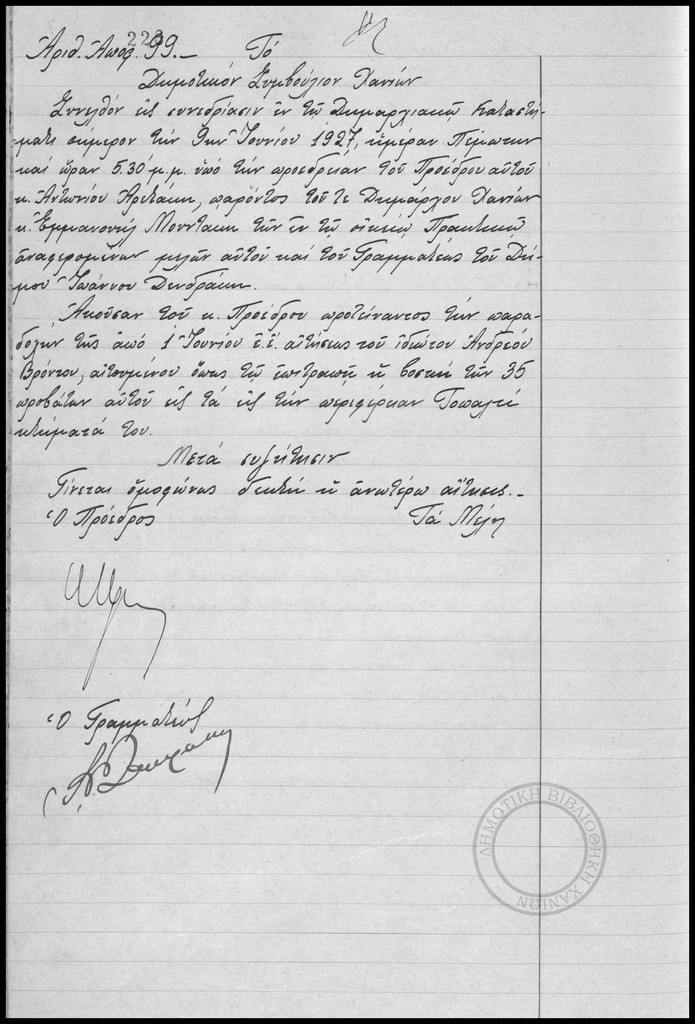 Ἀριθ. Ἀποφ. 99.— Τό
223
Δημοτικόν Συμβούλιον Χανίων
Συνελθόν εἰς συνεδρίασιν ἐν τῷ Δημαρχιακῷ καταστή-
ματι σήμερον τήν 9ην Ἰουνίου 1927, ἡμέραν Πέμπτην
καί ὥραν 5.30 μ.μ. ὑπό τήν προεδρείαν τοῦ Προέδρου αὐτοῦ
κ. Ἀντωνίου Ἀρετάκη, παρόντος τοῦ τε Δημάρχου Χανίων
κ. Ἐμμανουήλ Μουντάκη τῶν ἐν τῷ οἰκείῳ Πρακτικῷ
ἀναφερομένων μελῶν αὐτοῦ καί τοῦ Γραμματέως τοῦ Δή-
μου Ἰωάννου Δενδράκη.
Ἀκοῦσαν τοῦ κ. Προέδρου προτείναντος τήν παρα-
δοχήν τῆς ἀπό 1 Ἰουνίου ἐ.ἔ. αἰτήσεως τοῦ ἰδιώτου Ἀνδρέου
Βρόντου, αἰτουμένου ὅπως τῷ ἐπιτραπῇ ἡ βοσκή τῶν 35
προβάτων αὐτοῦ εἰς τά εἰς τήν περιφέρειαν Τοπαλτί
κτήματά του.
Μετά συζήτησιν
Γίνεται ὁμοφώνως δεκτή ἡ ἀνωτέρω αἴτησις.—
Ὁ Πρόεδρος Τά Μέλη
Ὁ Γραμματεύς
ΔΗΜΟΤΙΚΗ ΒΙΒΛΙΟΘΗΚΗ ΧΑΝΙΩΝ